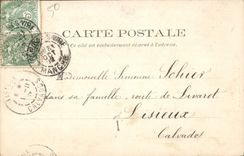 50
CARTE POSTALE
Ce côté est exclusivement réservé à l'adresse.
Mademoiselle Simonne Schier
dans sa famille, route de Livarot
à Lisieux
Calvados
MANCHE
CALVADOS